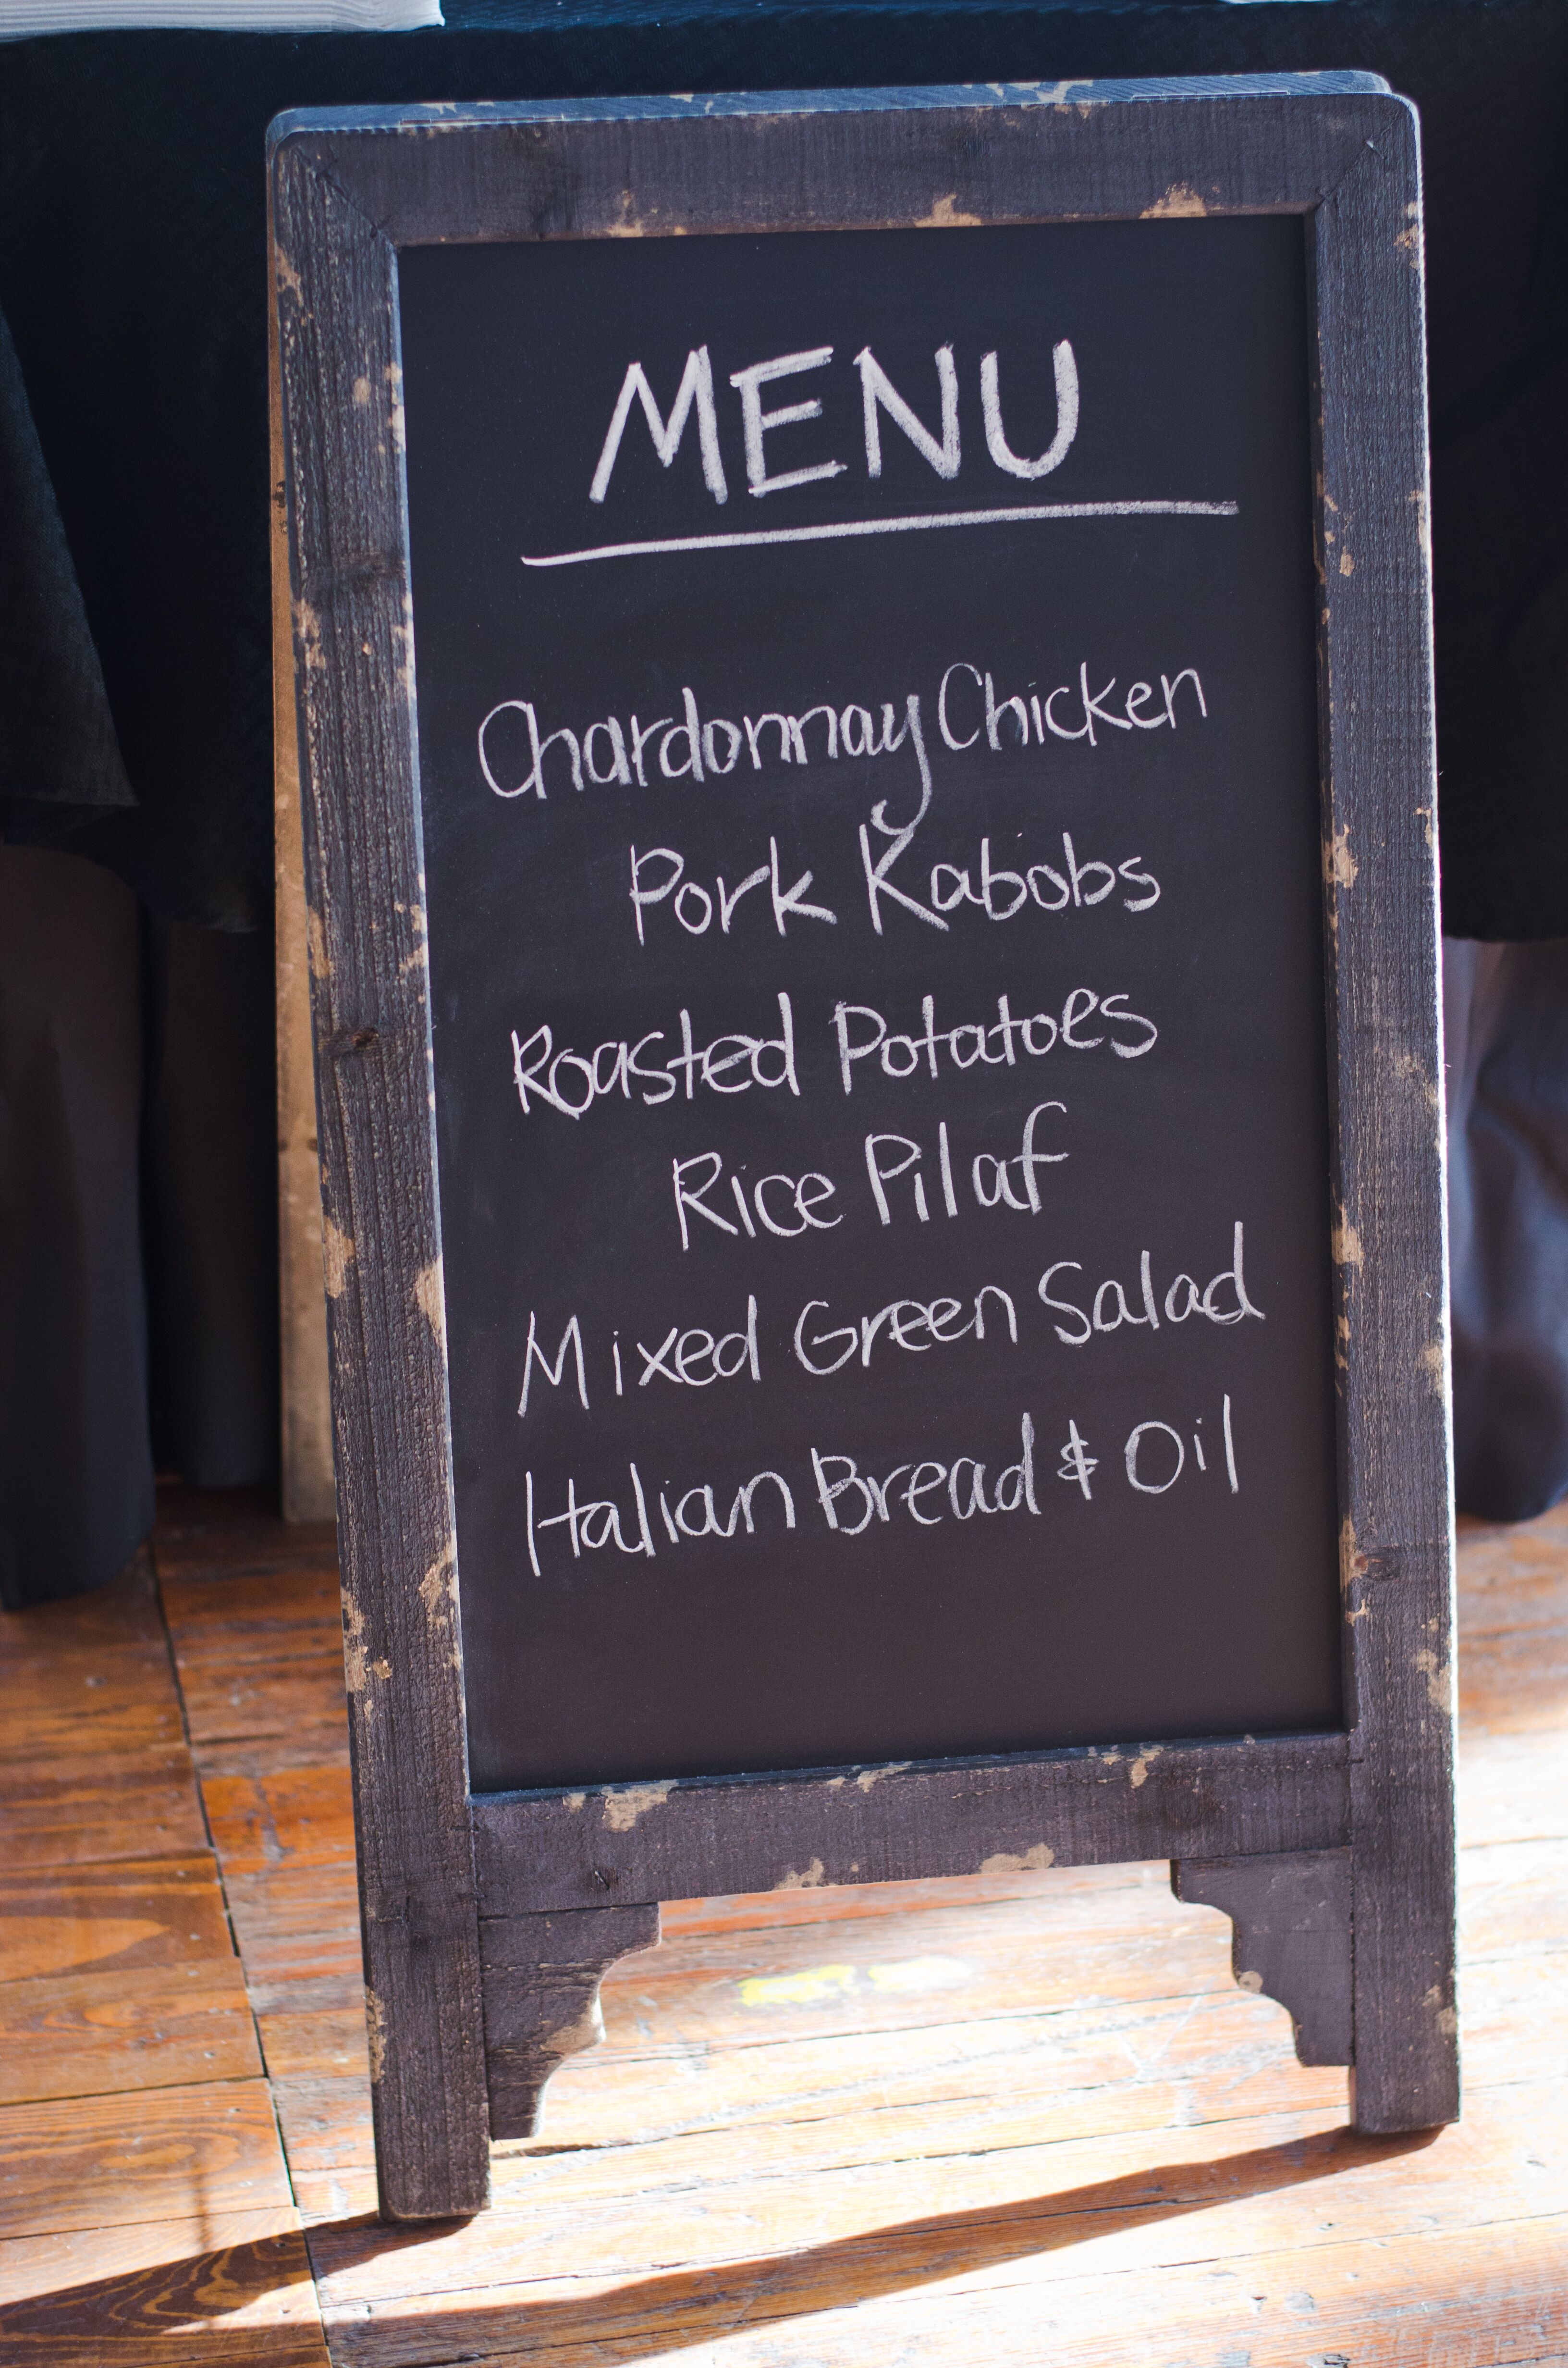 MENU
Chardonnay Chicken
Pork Kabobs
Roasted Potatoes
Rice Pilaf
Mixed Green Salad
Italian Bread & Oil